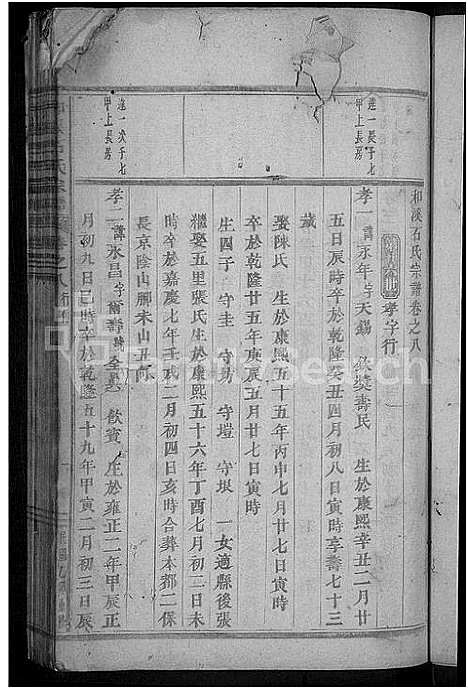 和溪石氏宗譜卷之八
孝字行
達一長子七
甲上長房
孝一 諱永年 字天錫 飲奬壽民 生於康熙辛丑二月廿
五日辰時卒於乾隆癸丑四月初八日辰時享壽七十三
歲
娶陳氏 生於康熙五十五年丙申七月廿七日寅時
卒於乾隆廿五年庚辰五月廿七日寅時
生四子 守圭 守坊 守塏 守垠 一女適縣後張
繼娶五里張氏生於康熙五十六年丁酉七月初二日未
時卒於嘉慶七年壬戌二月初四日亥時合葬本都二保
長京陰山脚未山丑向
達一次子七
甲上長房
孝二 諱永昌 字爾壽 飲賓 生於雍正二年甲辰正
月初九日巳時卒於乾隆五十九年甲寅二月初三日辰